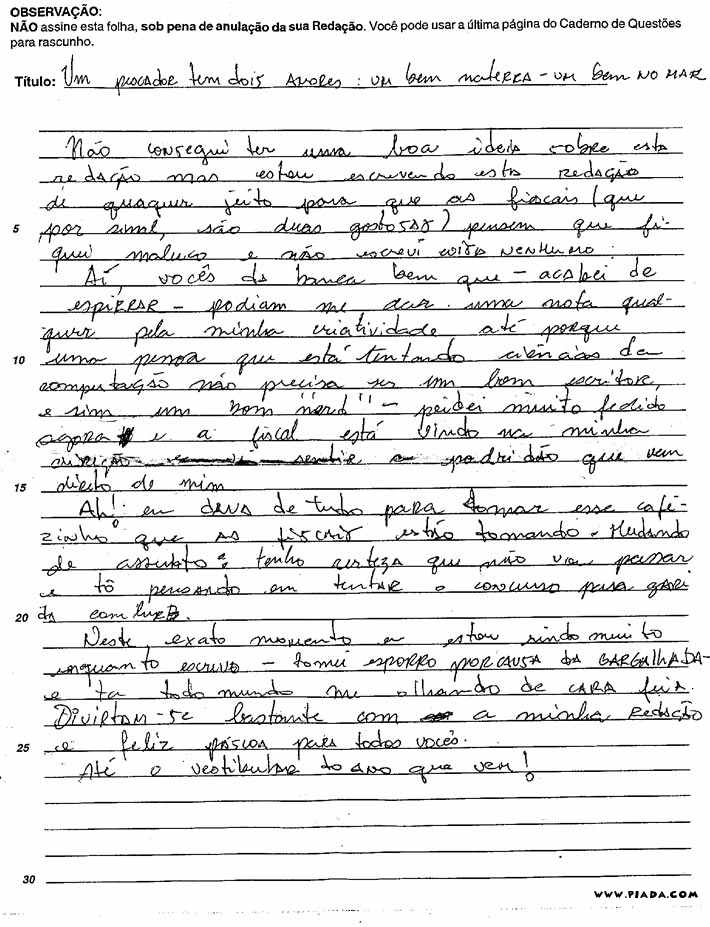 OBSERVAÇÃO:
NÃO assine esta folha, sob pena de anulação da sua Redação. Você pode usar a última página do Caderno de Questões
para rascunho.
Título: Um pescador tem dois amores: um bem na terra - um bem no mar
Não consegui ter uma boa ideia sobre esta
redação mas estou escrevendo esta redação
de quaquer jeito para que as fiscais (que
5 por sinal, são duas gostosas) pensem que fi-
quei maluco e não escrevi coisa nenhuma.
Aí, vocês da banca bem que - acabei de
espirrar - podiam me dar uma nota qual-
quer pela minha criatividade até porque
10 uma pessoa que está tentando ciências da
computação não precisa ser um bom escritor,
e sim um bom "nerd" - peidei muito fedido
agora e a fiscal está vindo na minha
direção sentir a podridão que vem
15 direto de mim
Ah! eu dava de tudo para tomar esse cafe-
zinho que as fiscais estão tomando. Mudando
de assunto: tenho certeza que não vou passar
e tô pensando em tentar o concurso para gari
20 da comlurb.
Neste exato momento eu estou rindo muito
enquanto escrevo - tomei esporro por causa da gargalhada -
e ta todo mundo me olhando de cara feia.
Divirtam-se bastante com a minha redação
25 e feliz páscoa para todos vocês.
Até o vestibular do ano que vem!
30
WWW.PIADA.COM